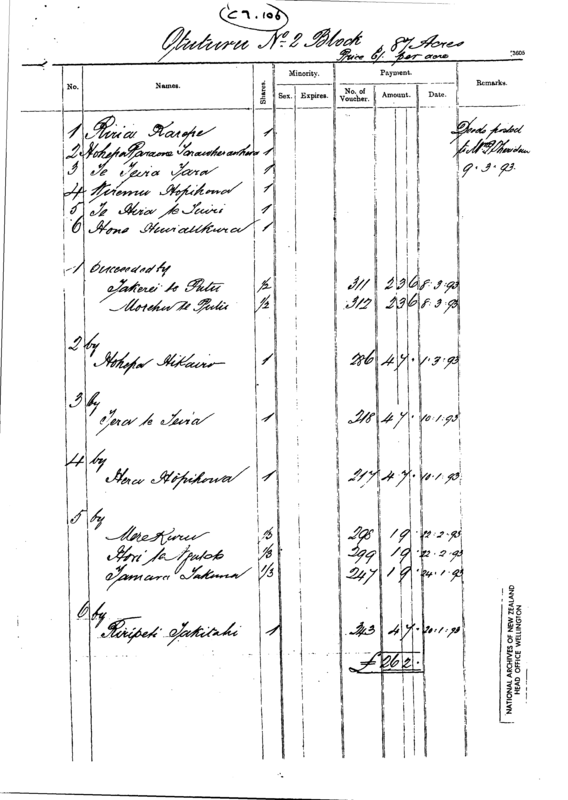 C7.106
Otuturu No 2 Block 87 Acres
Price 6/- per acre
3605
No. Names. Shares. Minority. Payment. Remarks.
Sex. Expires. No. of Voucher. Amount. Date.
1 Riria Karepe 1 Deeds posted
2 Hohepa 1 to Mr
3 Te Teira Tara 1 9.3.93.
4 Wiremu Hopihona 1
5 Te Hira te Tuiri 1
6 Hone 1
1 Succeeded by
Takerei te Putu 1/2 311 2 3 6 8.3.93
te Putu 1/2 312 2 3 6 8.3.93
2 by
Hohepa Hikairo 1 286 4 7 - 1.3.93
3 by
Tera te Teira 1 218 4 7 - 10.1.93
4 by
Hera Hopihona 1 217 4 7 - 10.1.93
5 by
Mere Kuru 1/3 298 1 9 - 22.2.93
Hori te 1/3 299 1 9 - 22.2.93
Tamara Takuna 1/3 247 1 9 - 24.1.93
6 by
Ripeti Takitahi 1 243 4 7 - 20.1.93
£ 26 2 -
NATIONAL ARCHIVES OF NEW ZEALAND
HEAD OFFICE WELLINGTON